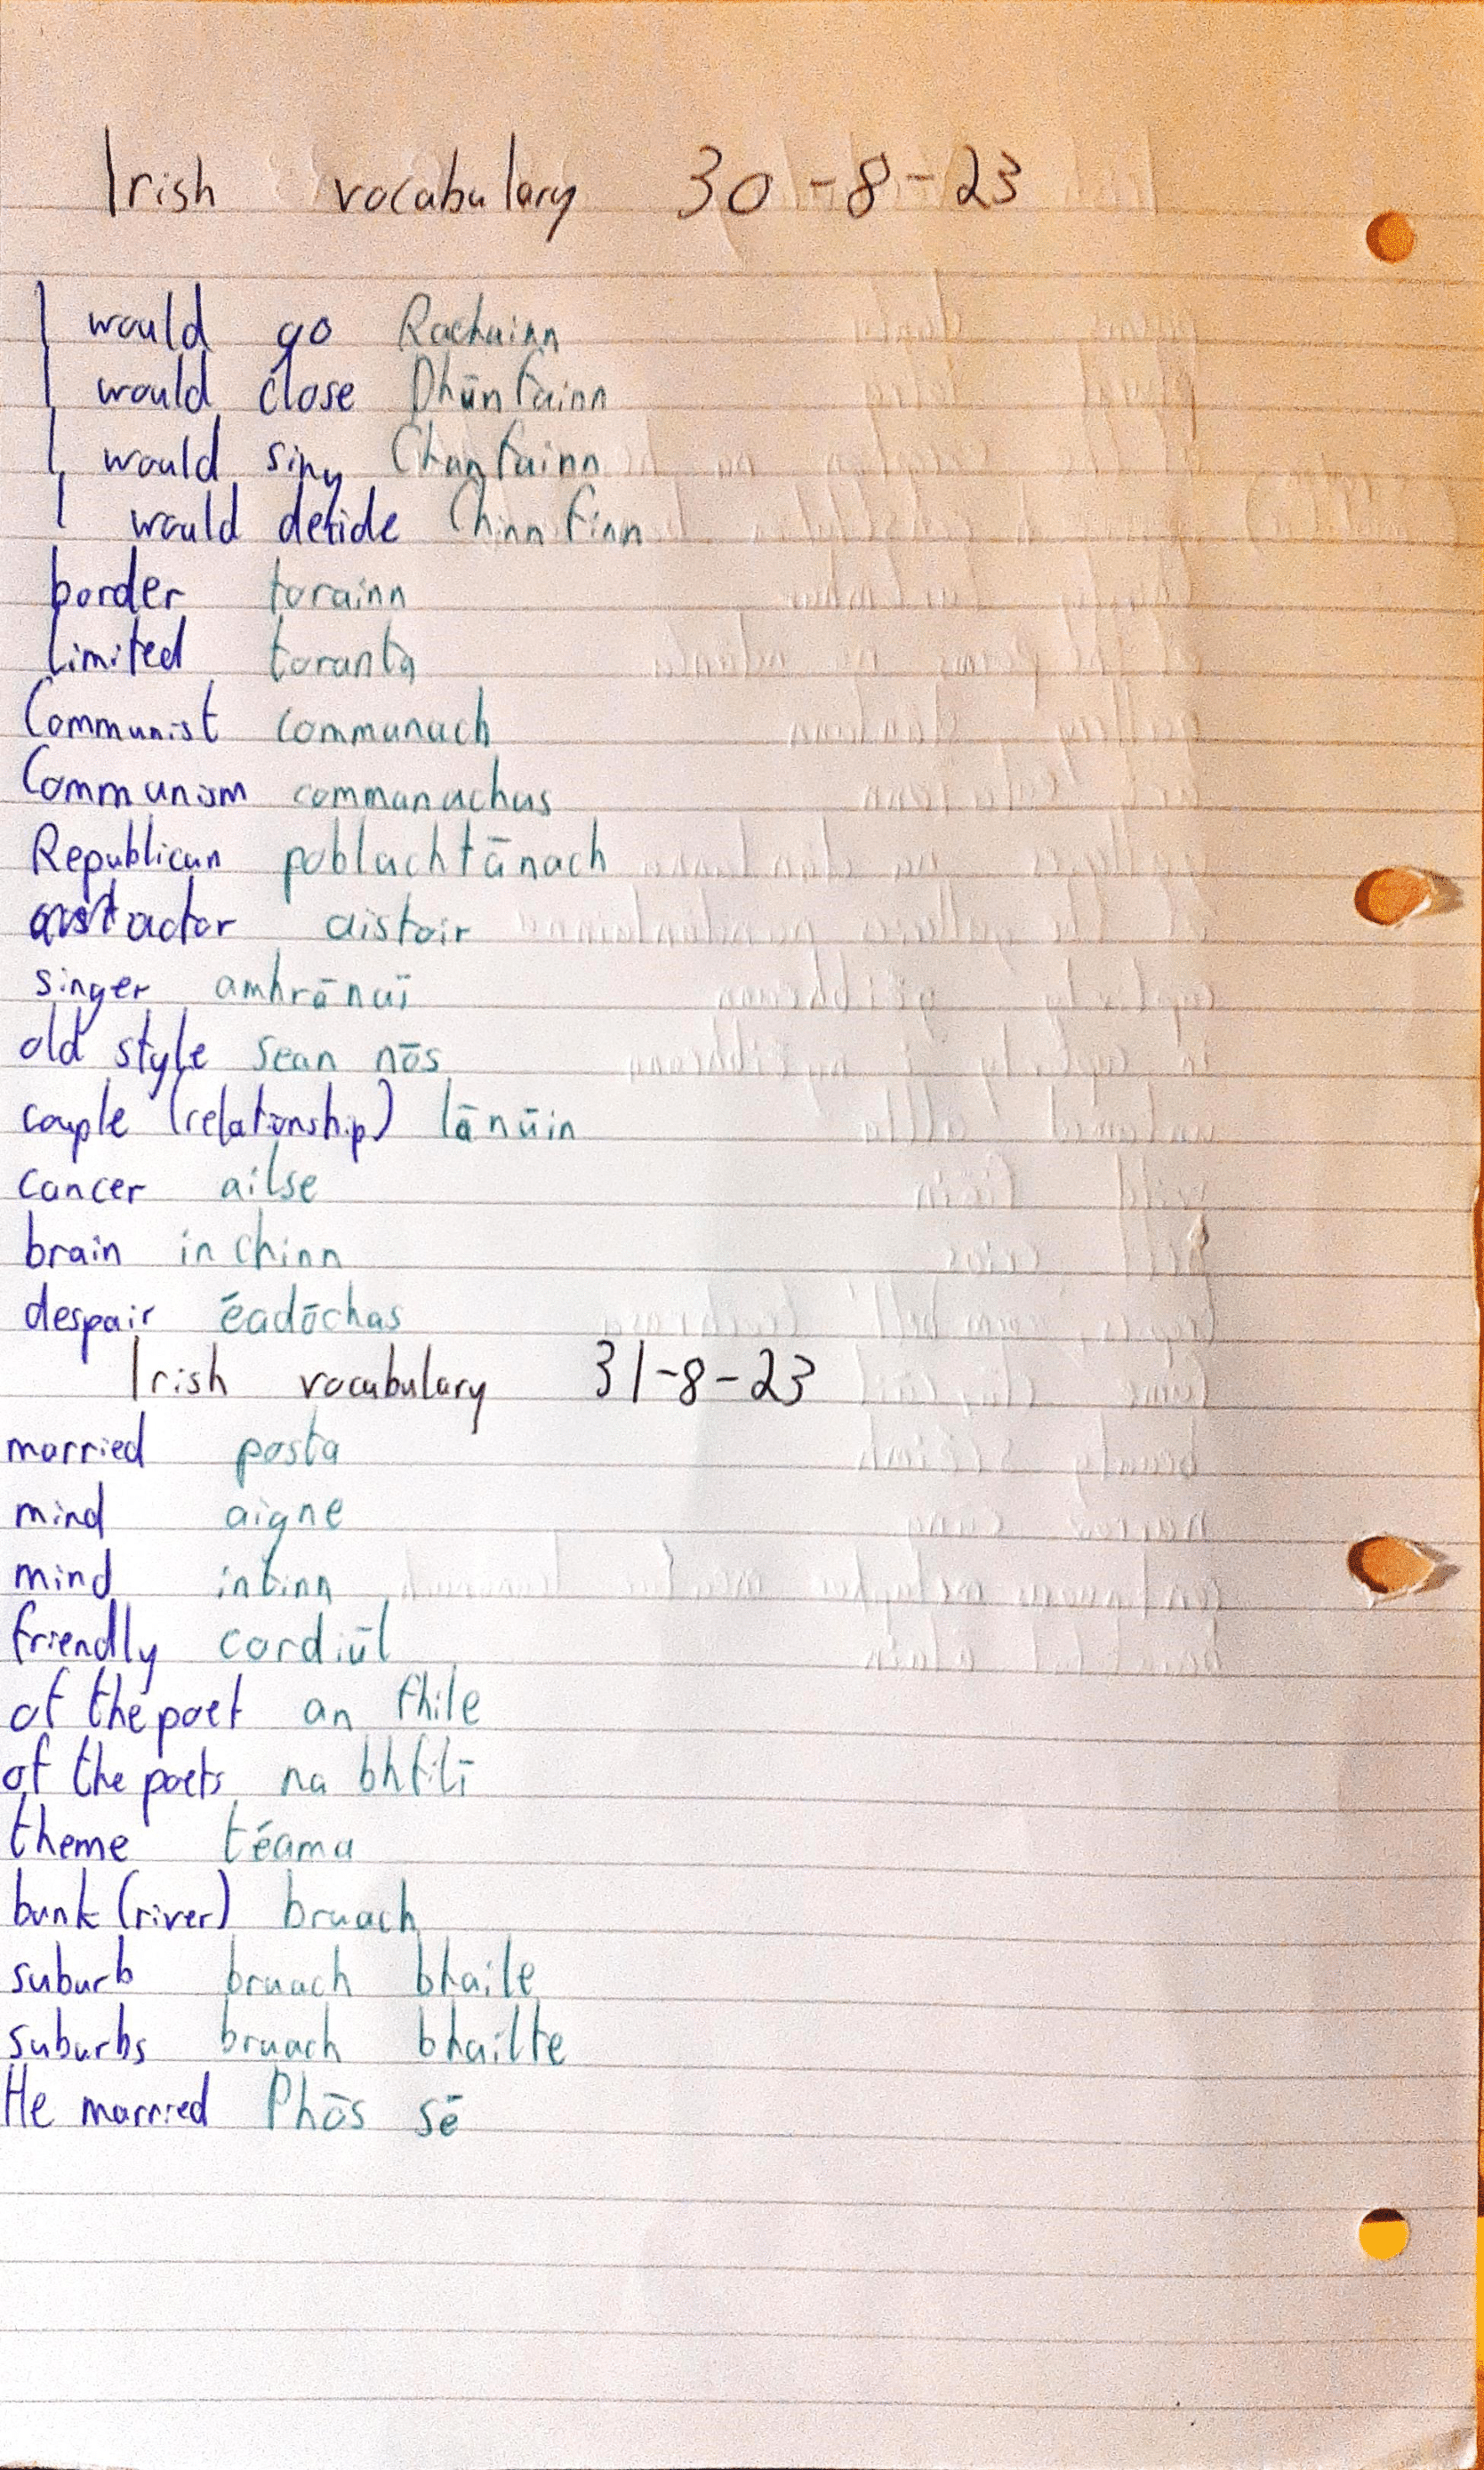 Irish vocabulary 30-8-23
I would go Rachainn
I would close Dhūnfainn
I would sing Chanfainn
I would decide Chinnfinn
border torainn
limited toranta
Communist commanach
Communism commanachas
Republican poblachtānach
actor aistoir
singer amhrānaī
old style sean nōs
couple (relationship) lānūin
cancer ailse
brain inchinn
despair ēadōchas
Irish vocabulary 31-8-23
married posta
mind aigne
mind intinn
friendly cordiūl
of the poet an fhile
of the poets na bhfilī
theme tēama
bank (river) bruach
suburb bruach bhaile
suburbs bruach bhailte
He married Phōs sē